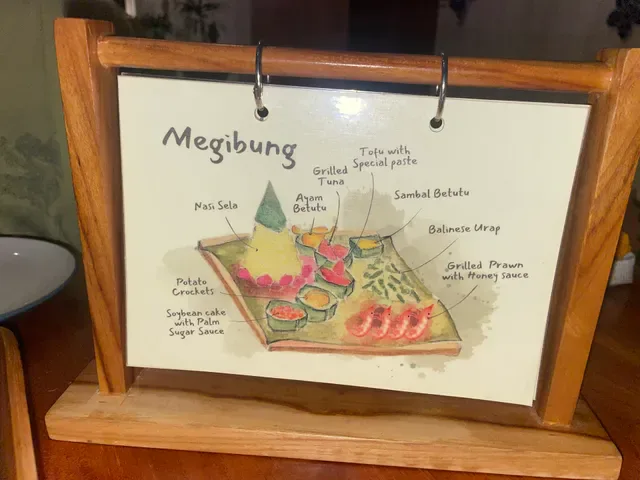 Megibung
Tofu with
Special paste
Grilled
Tuna
Ayam
Betutu
Sambal Betutu
Nasi Sela
Balinese Urap
Grilled Prawn
with Honey sauce
Potato
Crockets
Soybean cake
with Palm
Sugar Sauce